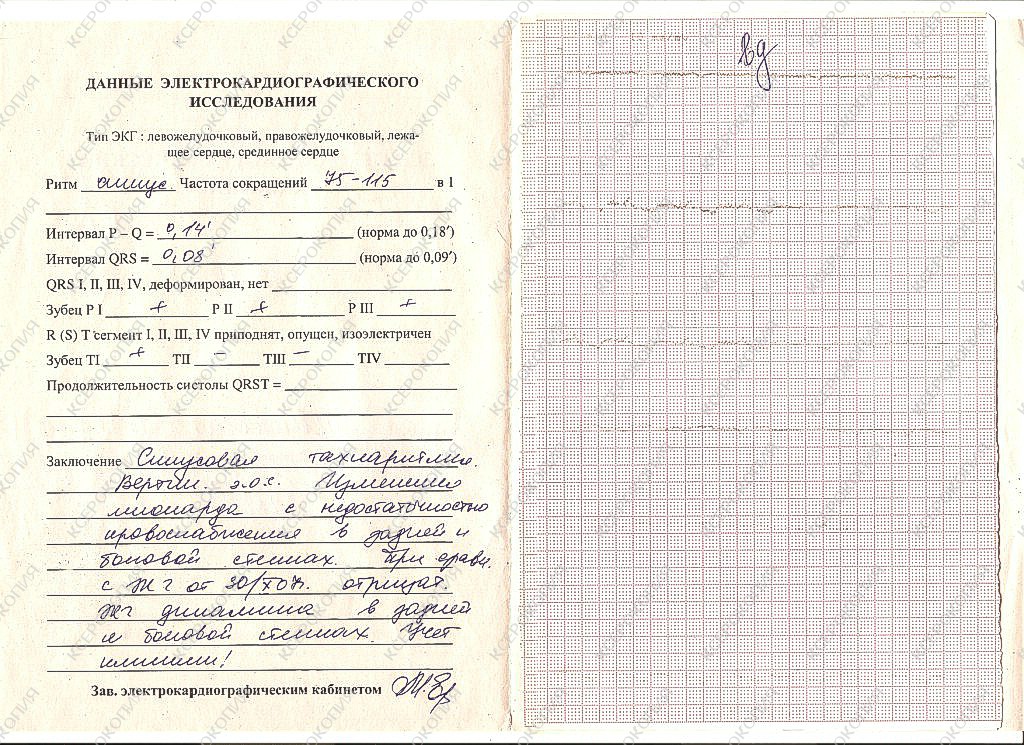 ДАННЫЕ ЭЛЕКТРОКАРДИОГРАФИЧЕСКОГО
ИССЛЕДОВАНИЯ
Тип ЭКГ : левожелудочковый, правожелудочковый, лежа-
щее сердце, срединное сердце
Ритм синус. Частота сокращений 75-115 в 1
Интервал P – Q = 0,14' (норма до 0,18')
Интервал QRS = 0,08' (норма до 0,09')
QRS I, II, III, IV, деформирован, нет
Зубец P I + P II + P III +
R (S) T сегмент I, II, III, IV приподнят, опущен, изоэлектричен
Зубец TI + TII – TIII – TIV
Продолжительность систолы QRST =
Заключение Синусовая тахиаритмия.
Вертик. э.о.с. Изменения
миокарда с недостаточностью
кровоснабжения в задней и
боковой стенках. При сравн.
с ЭКГ от 30/ отрицат.
ЭКГ динамика в задней
и боковой стенках. Учет
клиники!
Зав. электрокардиографическим кабинетом
 КСЕРОКОПИЯ